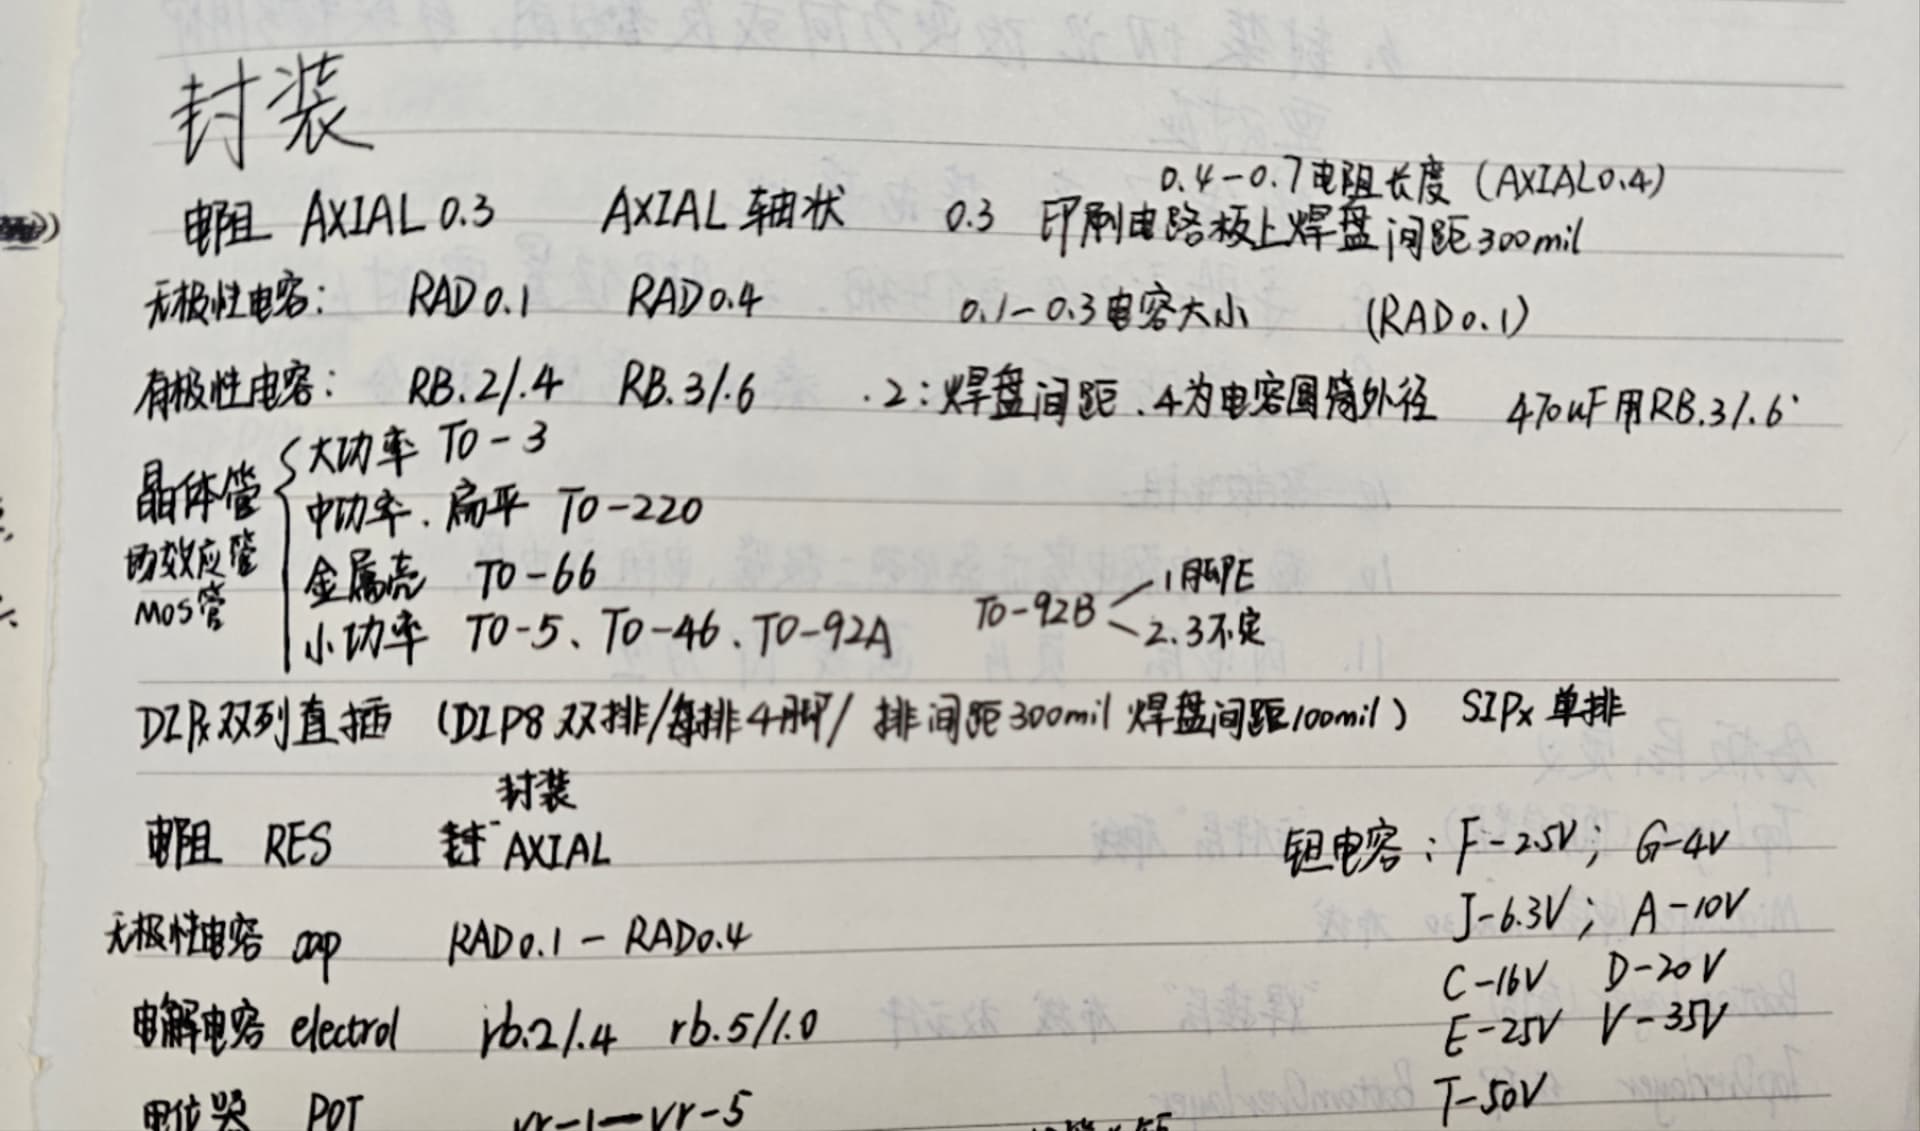 封装
0.4-0.7电阻长度 (AXIAL0.4)
电阻 AXIAL 0.3 AXIAL 轴状 0.3 印刷电路板上焊盘间距300mil
无极性电容: RAD 0.1 RAD 0.4 0.1-0.3电容大小 (RAD0.1)
有极性电容: RB.2/.4 RB.3/.6 .2:焊盘间距 .4为电容圆筒外径 470uF用RB.3/.6
晶体管
场效应管
MOS管
大功率 TO-3
中功率. 扁平 TO-220
金属壳 TO-66
小功率 TO-5、TO-46、TO-92A
TO-92B
1脚PE
2.3不定
DIPx双列直插 (DIP8 双排/每排4脚/ 排间距300mil 焊盘间距100mil) SIPx 单排
封装
电阻 RES AXIAL
无极性电容 cap RAD0.1-RAD0.4
电解电容 electrol rb.2/.4 rb.5/1.0
电位器 POT vr-1—vr-5
钽电容: F-2.5V; G-4V
J-6.3V; A-10V
C-16V D-20V
E-25V V-35V
T-50V